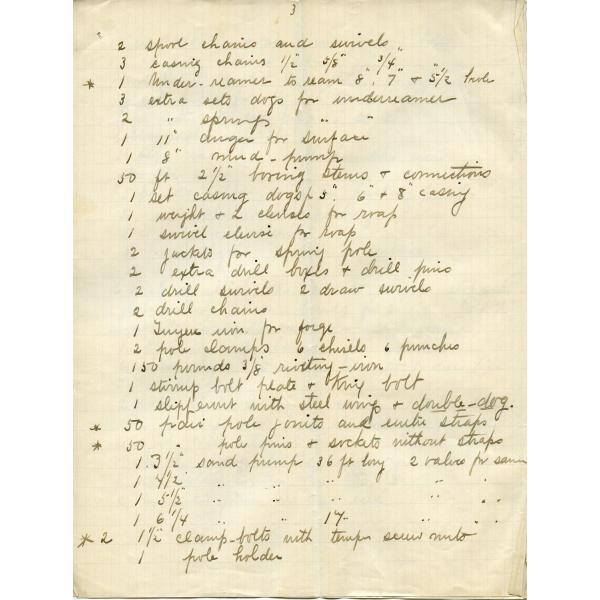 3
2 spool chains and swivels
3 casing chains 1/2" 5/8" 3/4"
* 1 Under-reamer to ream 8", 7" + 5 1/2 hole
3 extra sets dogs for underreamer
2 " springs " "
1 11" auger for surface
1 8" mud-pump
50 ft 2 1/2" boring stems + connections
1 set casing dogs 5", 6" + 8" casing
1 weight + 2 for
1 swivel for
2 jackets for spring pole
2 extra drill boxes + drill pins
2 drill swivels 2 draw swivels
2 drill chains
1 Tuyere iron for forge
2 pole clamps 6 chisels 6 punches
150 pounds 3/8" riveting-iron
1 stirrup bolt plate + King bolt
1 with steel + double-dog.
* 50 pair pole joints and straps
* 50 " pole pins + sockets without straps
1 3 1/2" sand pump 36 ft long 2 valves for same
1 4 1/2 " " " " "
1 5 1/2" " " " " "
1 6 1/4 " " 17- " " "
* 2 1 1/2" clamp-bolts with temper screw nuts
1 pole holder